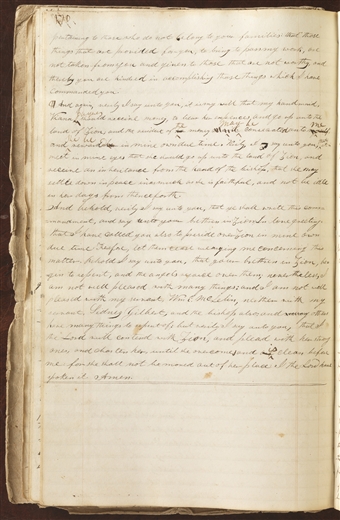 pertaining to those who do not belong to your families that those
things that are provided for you, to bring to pass my work, are
not taken from you and given to those that are not worthy and
thereby you are hindered in accomplishing those things which I have
commanded you.
And again verily I say unto you, it is my will that my handmaid,
Vienna should receive money to bear her expences, and go up unto the
land of Zion, and the residue of the money may be consecrated unto me
and she be rewarded in mine own due time. Verily I say unto you, it is
meet in mine eyes that she should go up unto the land of Zion, and
receive an inheritance from the hand of the bishop, that she may
settle down in peace in as much as she is faithful, and not be idle
in her days from thenceforth.
And behold verily I say unto you, that ye shall write this com-
mandment, and say unto your brethren in Zion in love greeting
that I have called you also to preside over Zion in mine own
due time. Therefore, let them cease wearying me concerning this
matter. behold I say unto you, that your brethren in Zion, be-
gin to repent, and the angels rejoice over them, nevertheless, I
am not well pleased with many things, and I am not well
pleased with my servant Wm E McLelin, neither with my
servant, Sidney Gilbert, and the bishop also, and others
have many things to repent of: but verily I say unto you, that I
the Lord will contend with Zion, and plead with her strong
ones, and chasten her, until she overcomes, and is clean before
me: for she shall not be moved out of her place. I the Lord have
spoken it Amen.